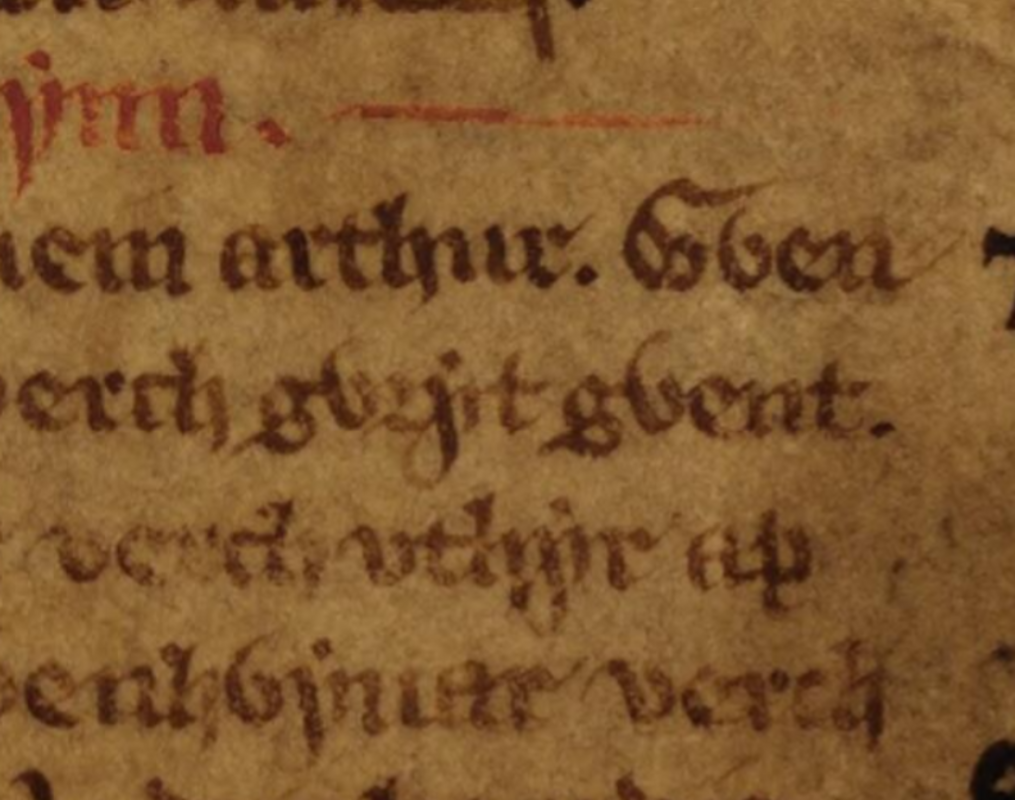 ẏnn.
nem arthur. Gỽen
verch gỽrẏt gỽent.
verch vthẏr ap
enhỽẏuar verch